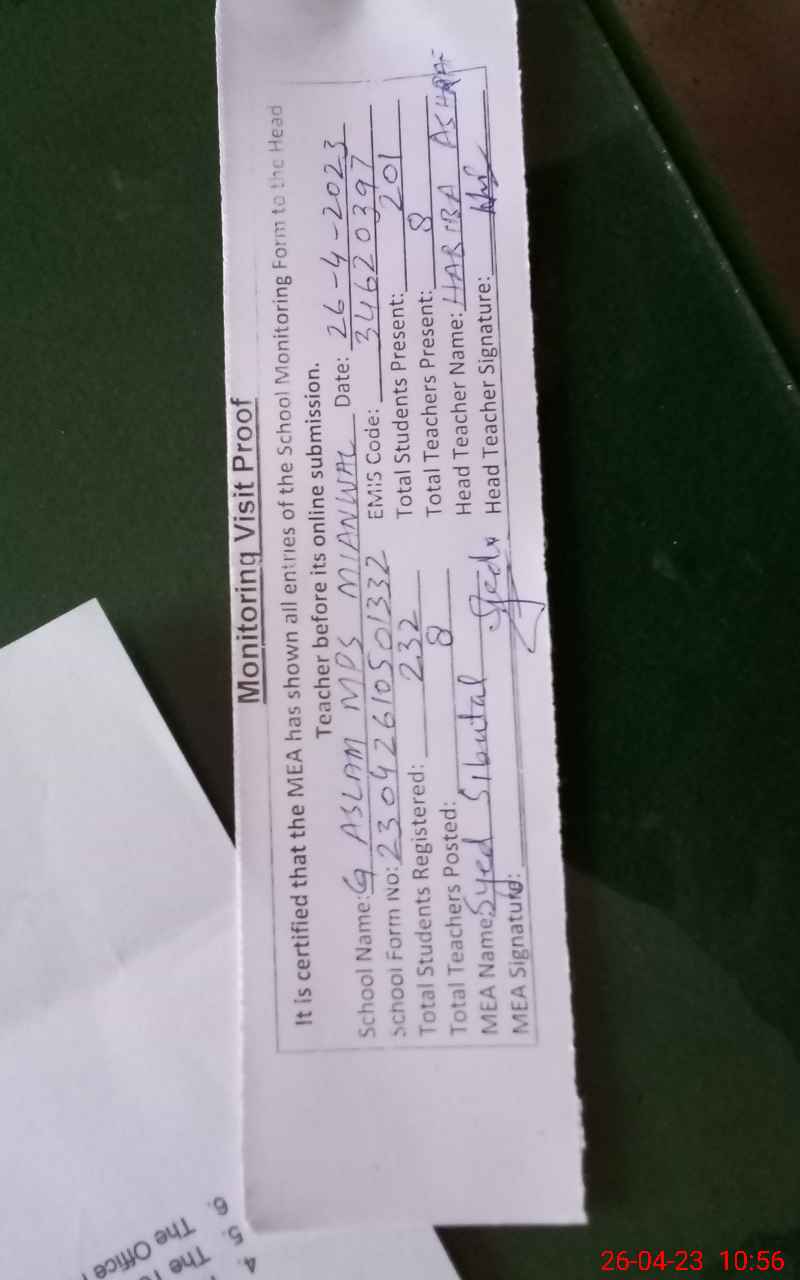 Monitoring Visit Proof
It is certified that the MEA has shown all entries of the School Monitoring Form to the Head
Teacher before its online submission.
School Name: G ASLAM MPS MIANWAL Date: 26-4-2023
School Form No: 23042610501332 EMIS Code: 34620397
Total Students Registered: 232 Total Students Present: 201
Total Teachers Posted: 8 Total Teachers Present: 8
MEA Name: Syed Sibutal Head Teacher Name: HABIBA ASHRAF
MEA Signature: Head Teacher Signature:
4.
5. The
6. The Office
26-04-23 10:56